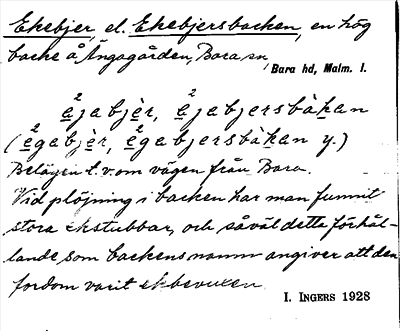 Ekebjer, el. Ekebjersbacken, en hög
backe å Ängagården, Bara sn,
Bara hd, Malm. l.
ejabjèr, ejabjersbàkan
(egabjèr, egabjersbàkan y.)
Belägen t.v. om vägen från Bara.
Vid plöjning i backen har man funnit
stora ekstubbar, och såväl detta förhål-
lande som backens namn angiver att den
fordom varit ekbevuxen.
I. INGERS 1928